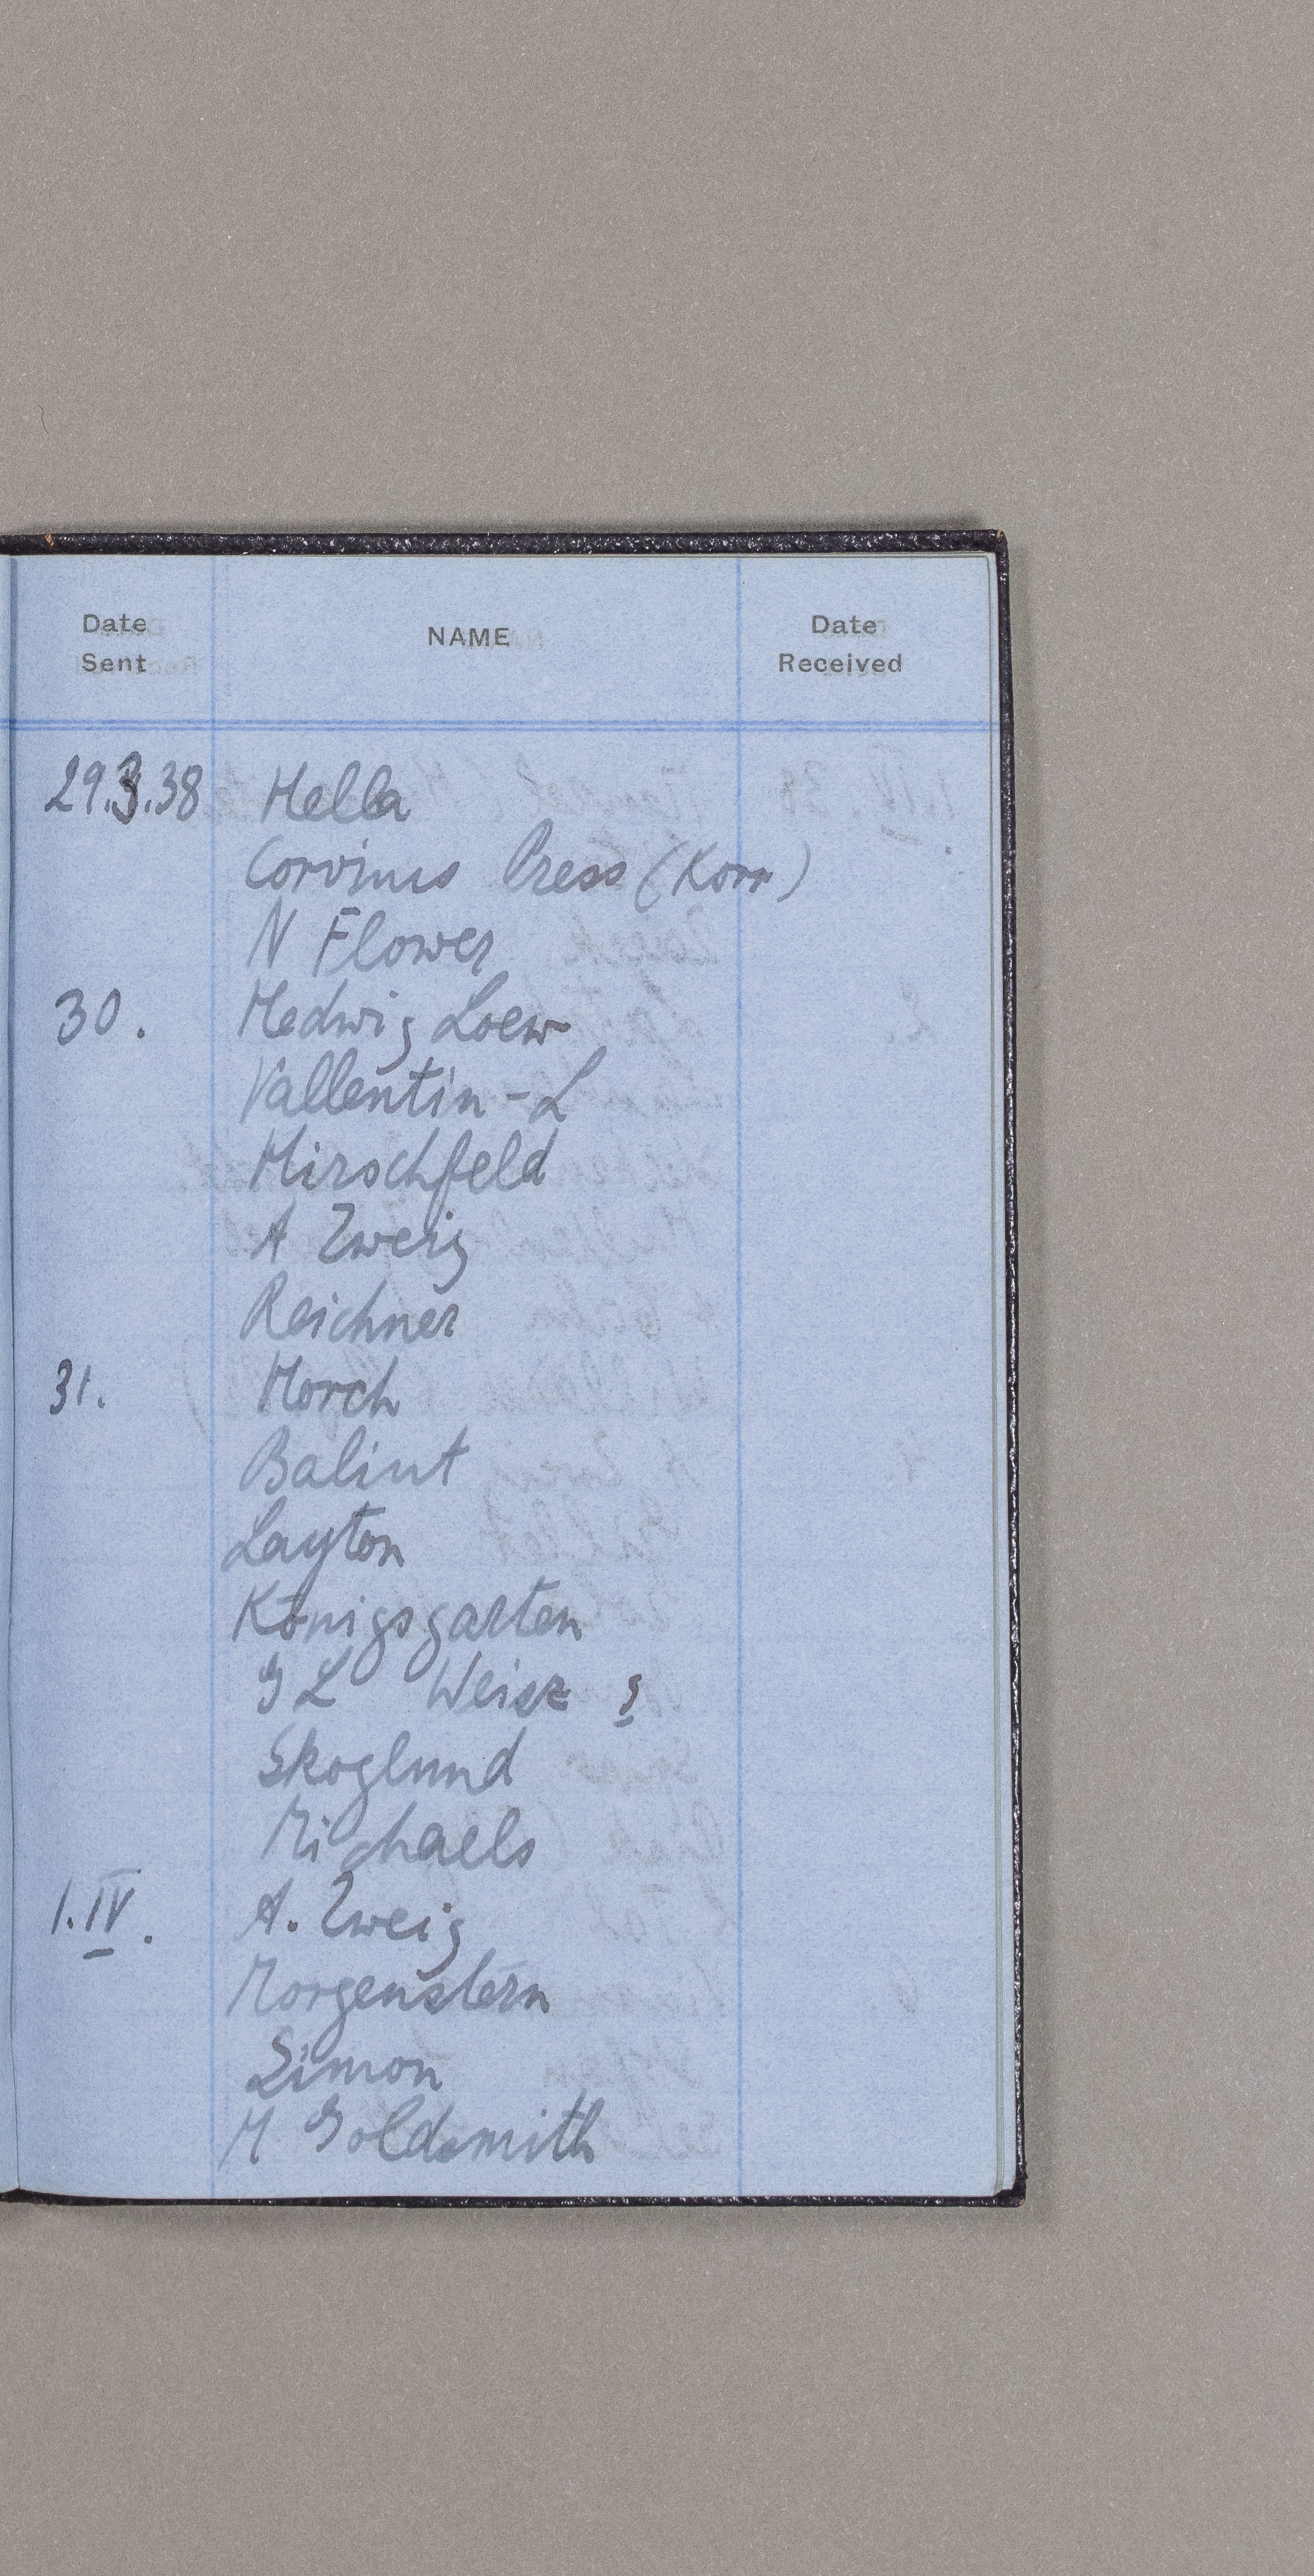 Date Sent NAME Date Received
29.3.38 Hella
Corvinus Press (Korr)
N Flower
30. Hedwig Loew
Vallentin-L
Hirschfeld
A Zweig
Reichner
31. Horch
Balint
Layton
Königsgarten
G L Weisz
Skoglund
Michaels
1.IV. A. Zweig
Morgenstern
Simon
M Goldsmith